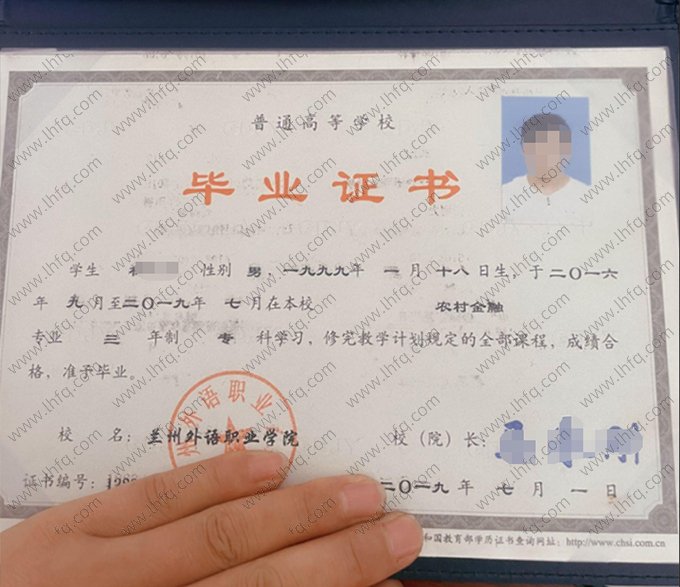 普通高等学校
毕业证书
学生 性别 男，一九九九年 一 月 十八 日生，于二〇一六
年 九 月至二〇一九年 七 月在本校 农村金融
专业 三 年制 专 科学习，修完教学计划规定的全部课程，成绩合
格，准予毕业。
校 名：兰州外语职业学院 校（院）长：
州外语职业
证书编号：
二〇一九 年 七 月 一 日
和国教育部学历证书查询网址：http://www.chsi.com.cn
www.lhfq.com